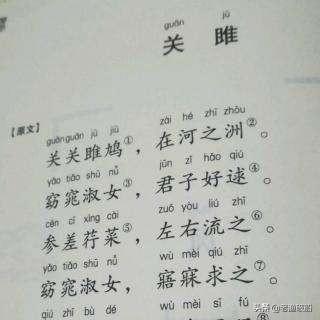 guān jū
关 雎
【原文】
guānguān jū jiū zài hé zhī zhōu
关关雎鸠①，在河之洲②。
yǎo tiǎo shū nǚ jūn zǐ hǎo qiú
窈窕淑女③，君子好逑④。
cēn cī xìng cài zuǒ yòu liú zhī
参差荇菜⑤，左右流之⑥。
yǎo tiǎo shū nǚ wù mèi qiú zhī
窈窕淑女，寤寐求之⑦。
qiú zhī bù dé wù mèi sī fú